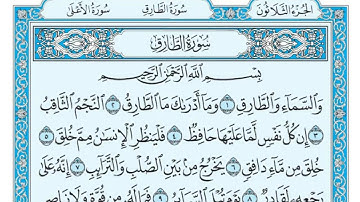 الجزء الثلاثون سورة الطارق سورة الأعلى
سُورَةُ الطَّارِقِ
بِسْمِ اللَّهِ الرَّحْمَٰنِ الرَّحِيمِ
وَالسَّمَاءِ وَالطَّارِقِ ١ وَمَا أَدْرَاكَ مَا الطَّارِقُ ٢ النَّجْمُ الثَّاقِبُ
٣ إِن كُلُّ نَفْسٍ لَّمَّا عَلَيْهَا حَافِظٌ ٤ فَلْيَنظُرِ الْإِنسَانُ مِمَّ خُلِقَ ٥
خُلِقَ مِن مَّاءٍ دَافِقٍ ٦ يَخْرُجُ مِن بَيْنِ الصُّلْبِ وَالتَّرَائِبِ ٧ إِنَّهُ عَلَىٰ
رَجْعِهِ لَقَادِرٌ ٨ يَوْمَ تُبْلَى السَّرَائِرُ ٩ فَمَا لَهُ مِن قُوَّةٍ وَلَا نَاصِرٍ